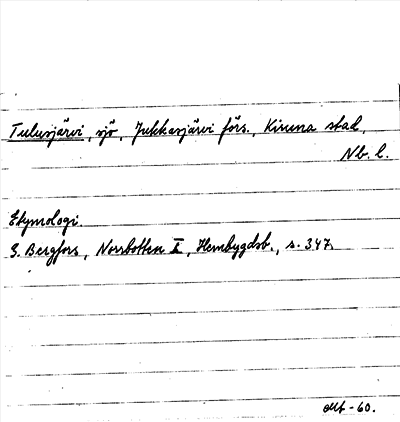 Tulusjärvi, sjö, Jukkasjärvi förs., Kiruna stad,
Nb. l.
Etymologi.
G. Bergfors, Norrbotten I, Hembygdsb., s. 347
-60.